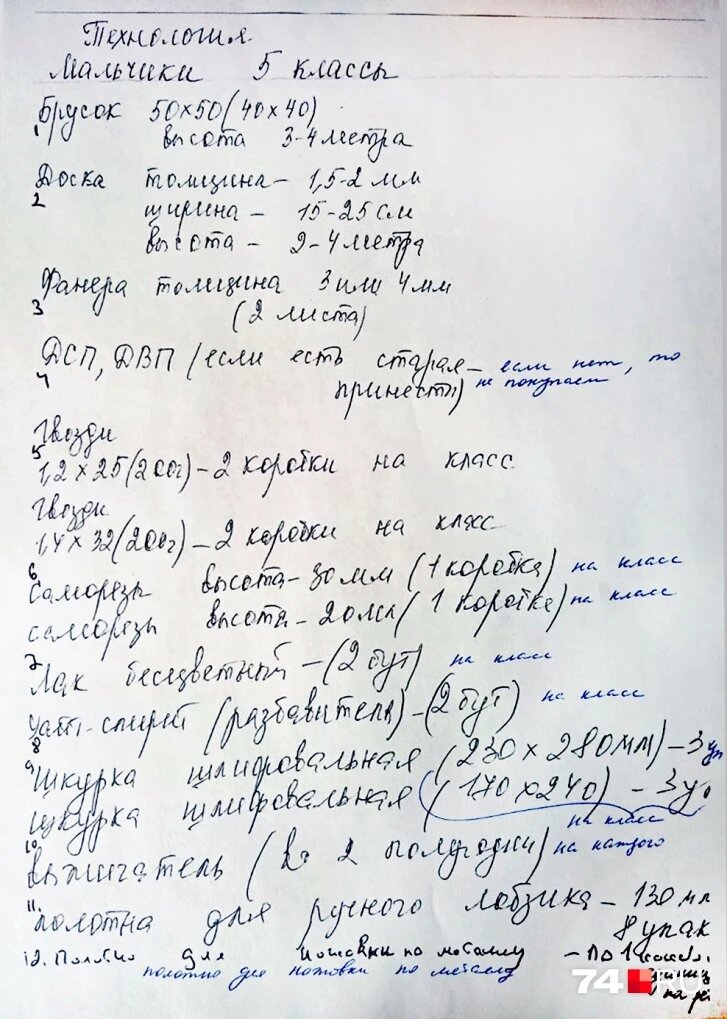 Технология
Мальчики 5 классы
Брусок 50×50 (40×40)
1 высота 3-4 метра
Доска толщина – 1,5-2 мм
2 ширина – 15-25 см
высота – 2-4 метра
Фанера толщина 3 или 4 мм
3 (2 листа)
ДСП, ДВП (если есть старая – если нет, то
4 принести) не покупаем
Гвозди
5 1,2×25 (200г) – 2 коробки на класс
Гвозди
1,4×32 (200г) – 2 коробки на класс
6 Саморезы высота – 30 мм (1 коробка) на класс
саморезы высота – 20 мм (1 коробка) на класс
7 Лак бесцветный – (2 бут) на класс
8 Уайт-спирит (разбавитель) – (2 бут) на класс
9 Шкурка шлифовальная (230×280мм) – 3 уп
шкурка шлифовальная (170×240) – 3 уп
на класс
10 Выжигатель (во 2 полугодии) на каждого
11. Полотна для ручного лобзика – 130 мм
8 упак
12. Полотно для ножовки по металлу – По 1
полотно для ножовки по металлу
на
74.RU